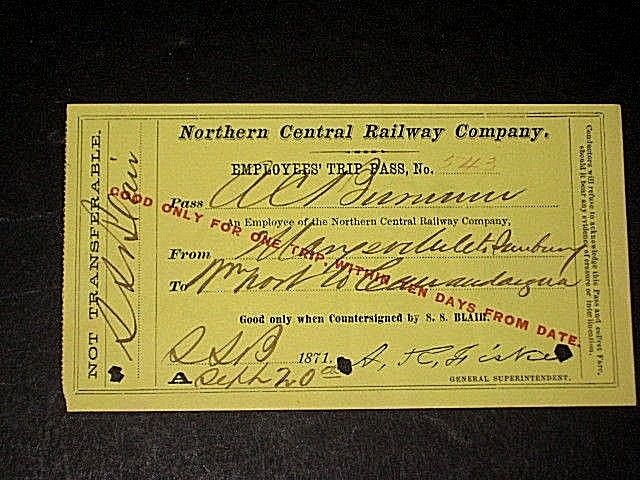 NOT TRANSFERABLE.
S S Blair
Northern Central Railway Company.
EMPLOYEES' TRIP PASS, No. 743
Pass A C
An Employee of the Northern Central Railway Company,
From to Sunbury
To Wmsport to Canandaigua
GOOD ONLY FOR ONE TRIP WITHIN TEN DAYS FROM DATE.
Good only when Countersigned by S. S. BLAIR.
S S B 1871. A. R. Fiske
A Sept 20th
GENERAL SUPERINTENDENT.
Conductors will refuse to acknowledge this Pass and collect Fare,
should it bear any evidence of erasure or interlineation.